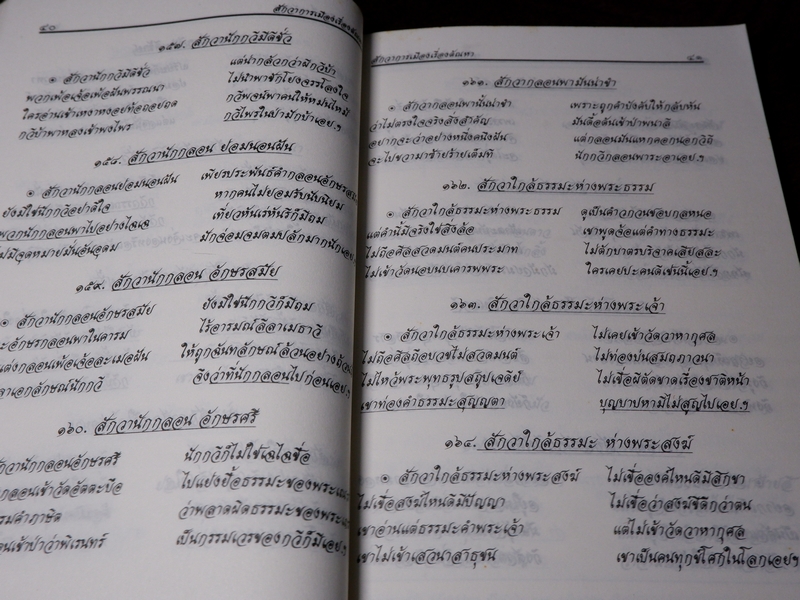 ๔๐ สักวาการเมืองเรื่อง
๑๕๗. สักวานักกวีมิดีชั่ว
๏ สักวานักกวีมิดีชั่ว แต่น่ากลัวกว่าผีกวีบ้า
พวกเพ้อเจ้อเพ้อฝันพรรณนา ไม่นำพาชักโยงจรรโลงใจ
ใครอ่านเข้าเหงาหงอยท้อถอยถด กวีพจน์พาคนให้หม่นไหม้
กวีบ้าพาหลงเข้าพงไพร กวีไพร่ในป่ามักบ้าเอยฯ
๑๕๘. สักวานักกลอน ย่อมนอนฝัน
๏ สักวานักกลอนย่อมนอนฝัน เพียรประพันธ์คำกลอนอักษร
ยังมิใช่นักกวีอย่าดีใจ หากคนไม่ยอมรับนับนิยม
พวกนักกลอนพาไปอย่างไฉเฉ เที่ยวหันเร่หันรีก็มีถม
ไม่มีจุดหมายมั่นอันอุดม มักจ่อมจมตมปลักมากนักเอยฯ
๑๕๙. สักวานักกลอน อักษรสมัย
๏ สักวานักกลอนอักษรสมัย ยังมิใช่นักกวีก็มีถม
อักษรกลอนพาในคารม ไร้อารมณ์ลีลาเมธาวี
แต่งกลอนเพ้อเจ้อละเมอฝัน ให้ถูกฉันทลักษณ์ล้วนอย่างถ้วน
ลาเอกลักษณ์นักกวี จึงว่าที่นักกลอนไปก่อนเอยฯ
๑๖๐. สักวานักกลอน อักษรศรี
สักวานักกลอนอักษรศรี นักกวีก็ไม่ใช้เฉไฉชื่อ
กลอนเข้าวัดอัตตะบือ ไปแย่งยื้อธรรมะของพระ
รมคำภาษิต ว่าพลาดผิดธรรมะของพระ
คนเข้าป่าว่าพิเรนทร์ เป็นกรรมเวรของกวีก็มีเอยฯ
สักวาการเมืองเรื่องตัณหา ๔๑
๑๖๑. สักวากลอนพามันน่าขำ
๏ สักวากลอนพานั้นน่าขำ เพราะถูกคำบังคับให้กลับหัน
ว่าไม่ตรงใจจริงสิ่งสำคัญ มันดื้อดันเข้าป่าพนาลี
อยากจะว่าอย่างหนึ่งคนึงฝัน แต่กลอนมันแหกคอกนอกวิถี
จะไปขวามาซ้ายร้ายเต็มที นักกวีกลอนพาระอาเอยฯ
๑๖๒. สักวาใกล้ธรรมะห่างพระธรรม
๏ สักวาใกล้ธรรมะห่างพระธรรม ดูเป็นคำวกวนชอบกลหนอ
แต่คำนี้มีจริงใช่สิ่งล้อ เขาพูดจ้อแต่คำทางธรรมะ
ไม่ถือศีลสวดมนต์คนประมาท ไม่ตักบาตรบริจาคเสียสละ
ไม่เข้าวัดนอบนบเคารพพระ ใครเคยปะคนดีเช่นนี้เอยฯ
๑๖๓. สักวาใกล้ธรรมะห่างพระเจ้า
๏ สักวาใกล้ธรรมะห่างพระเจ้า ไม่เคยเข้าวัดวาหากุศล
ไม่ถือศีลถือบวชไม่สวดมนต์ ไม่ท่องบ่นสมถภาวนา
ไม่ไหว้พระพุทธรูปสถูปเจดีย์ ไม่เชื่อผีตัดขาดเรื่องชาติหน้า
เขาท่องคำธรรมะสุญญตา บุญบาปหามีไม่สูญไปเอยฯ
๑๖๔. สักวาใกล้ธรรมะ ห่างพระสงฆ์
๏ สักวาใกล้ธรรมะห่างพระสงฆ์ ไม่เชื่อองค์ไหนดีมีสิกขา
ไม่เชื่อสงฆ์ไหนดีมีปัญญา ไม่เชื่อว่าสงฆ์ชีดีกว่าตน
เขาอ่านแต่ธรรมะคำพระเจ้า แต่ไม่เข้าวัดวาหากุศล
เขาไม่เข้าเสวนาสาธุชน เขาเป็นคนทุกข์โศกในโลกเอยฯ